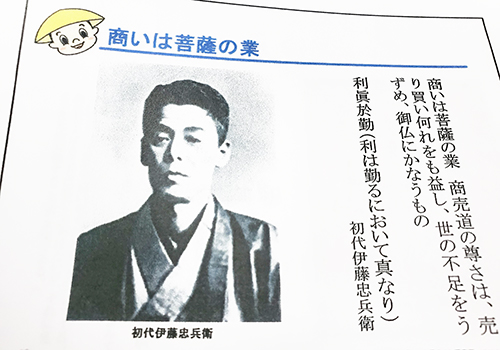 商いは菩薩の業
商いは菩薩の業 商売道の尊さは、売
り買い何れをも益し、世の不足をう
ずめ、御仏にかなうもの
利眞於勤(利は勤るにおいて真なり)
初代伊藤忠兵衛
初代伊藤忠兵衛